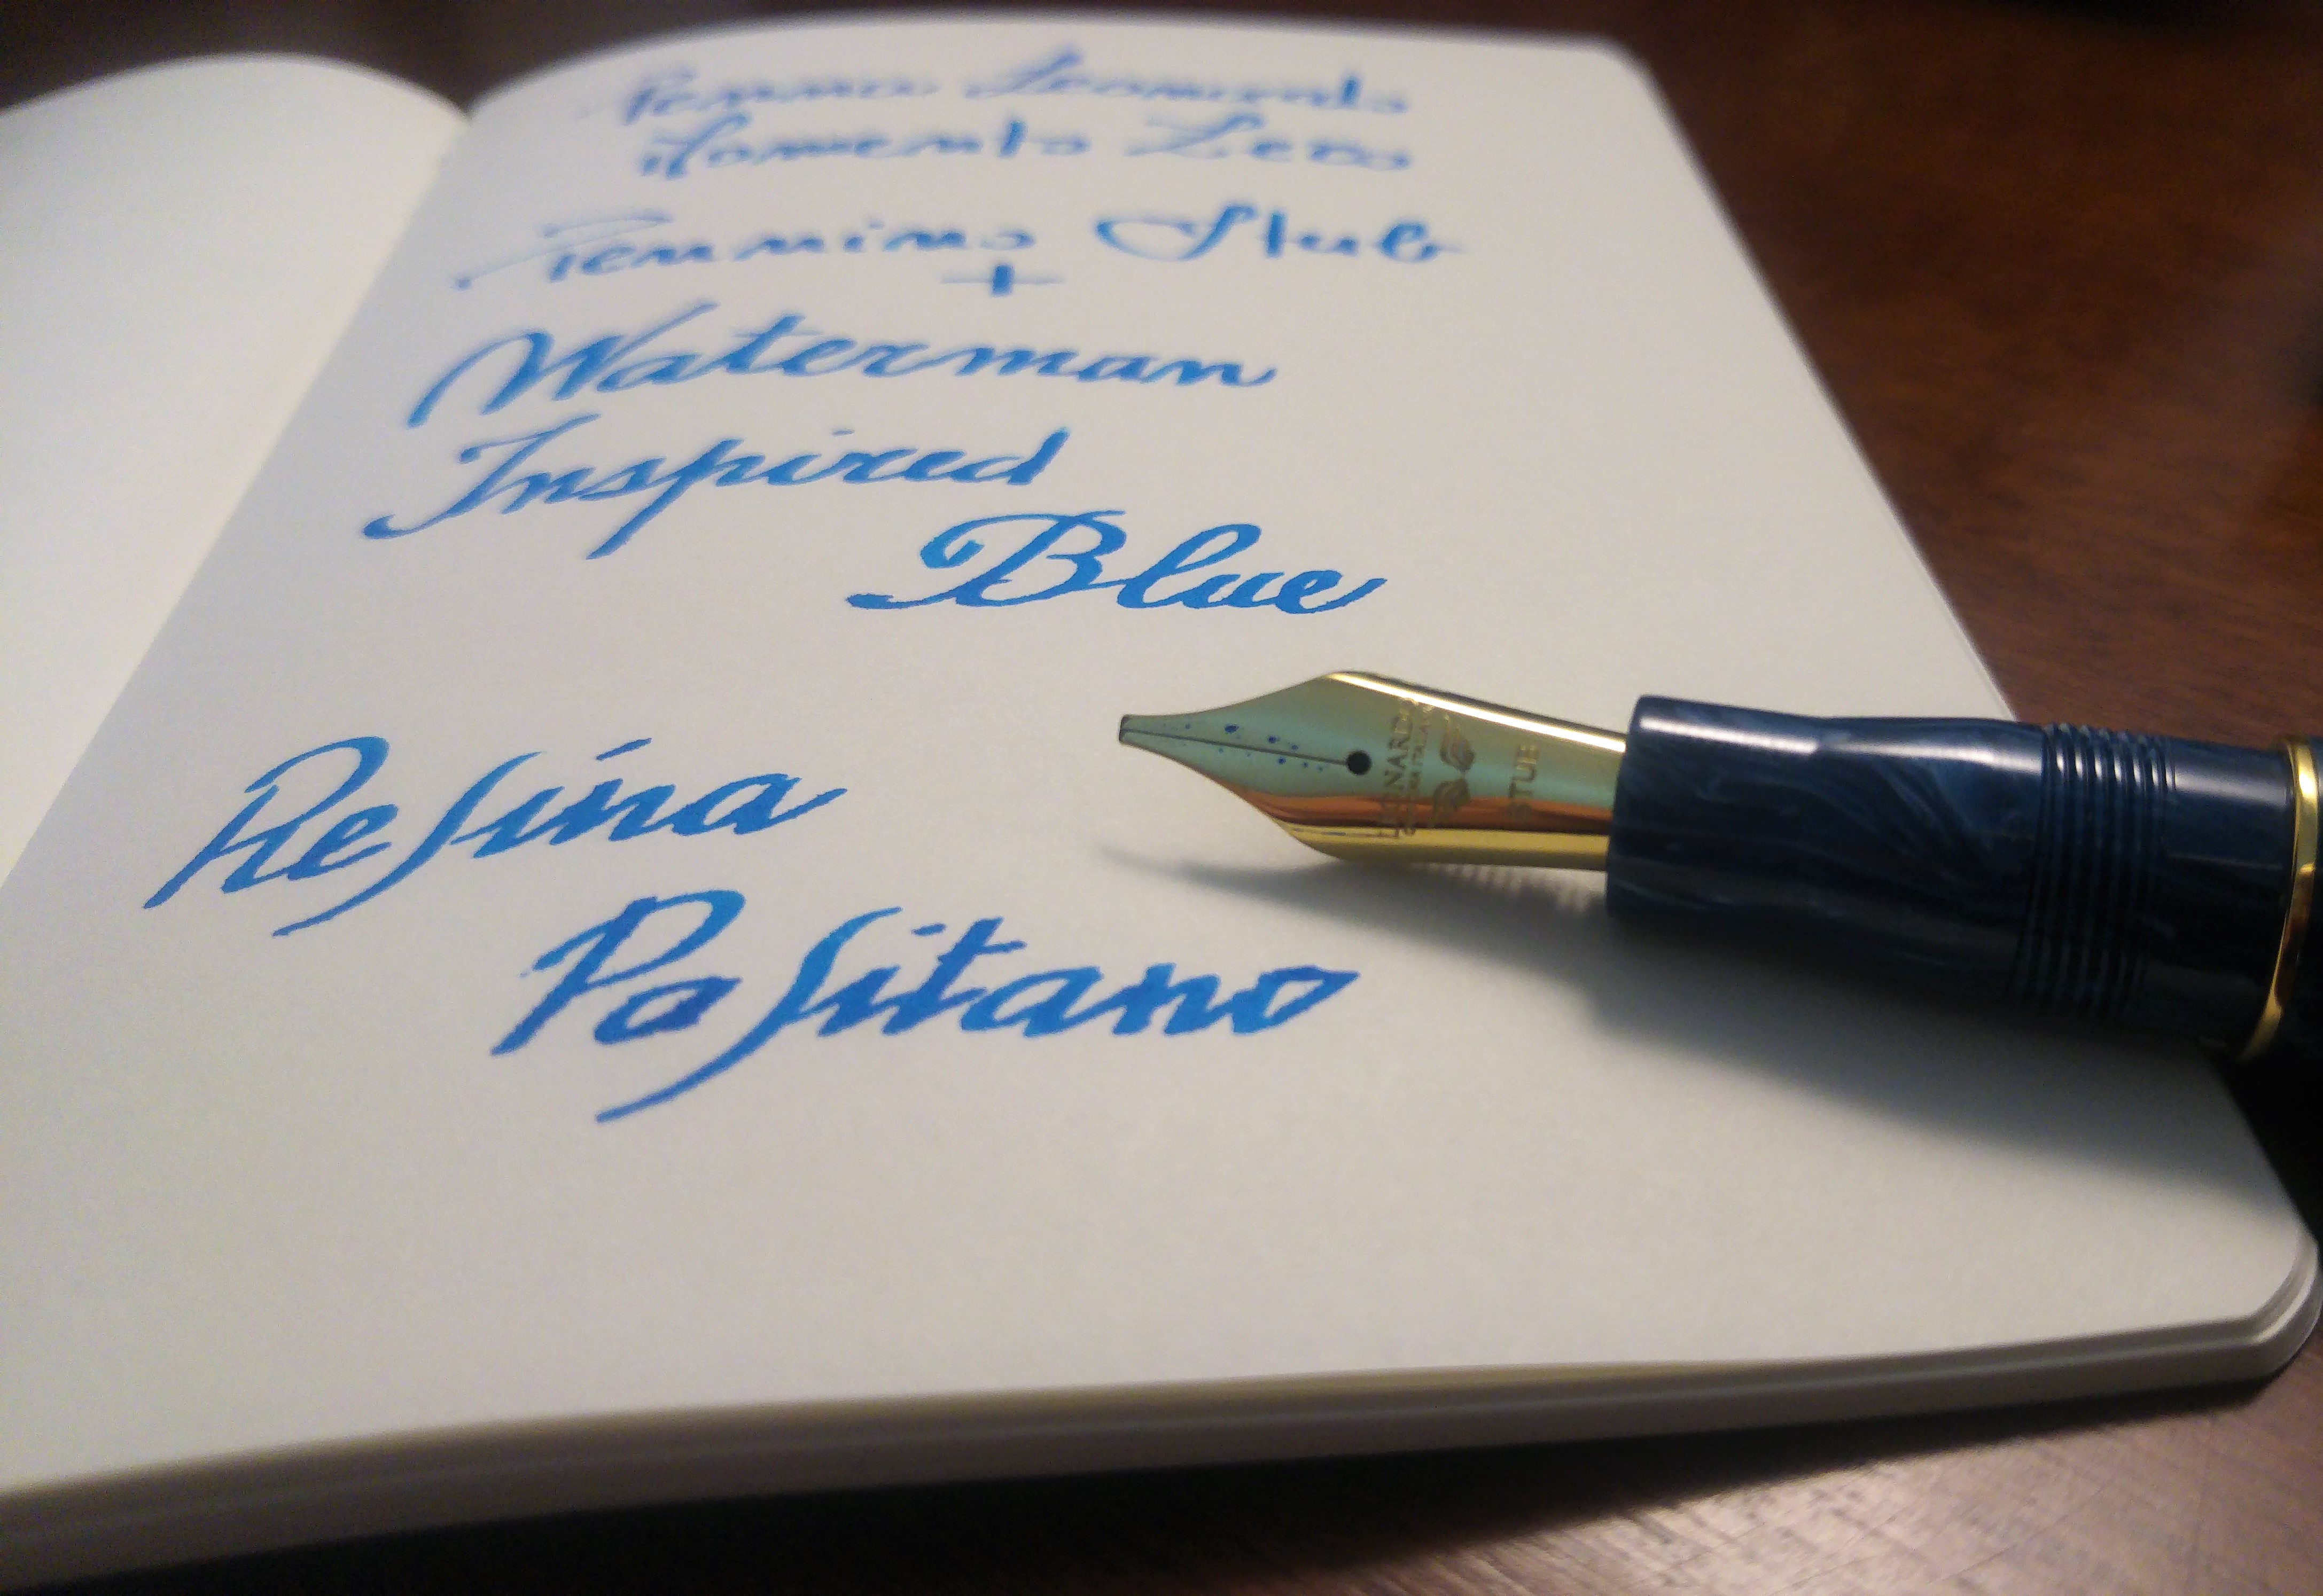 Penna Leonardo
Momento Zero
Pennino Stub
+
Waterman
Inspired
Blue
Resina
Positano
LEONARDO
OFFICINA ITALIANA
STUB